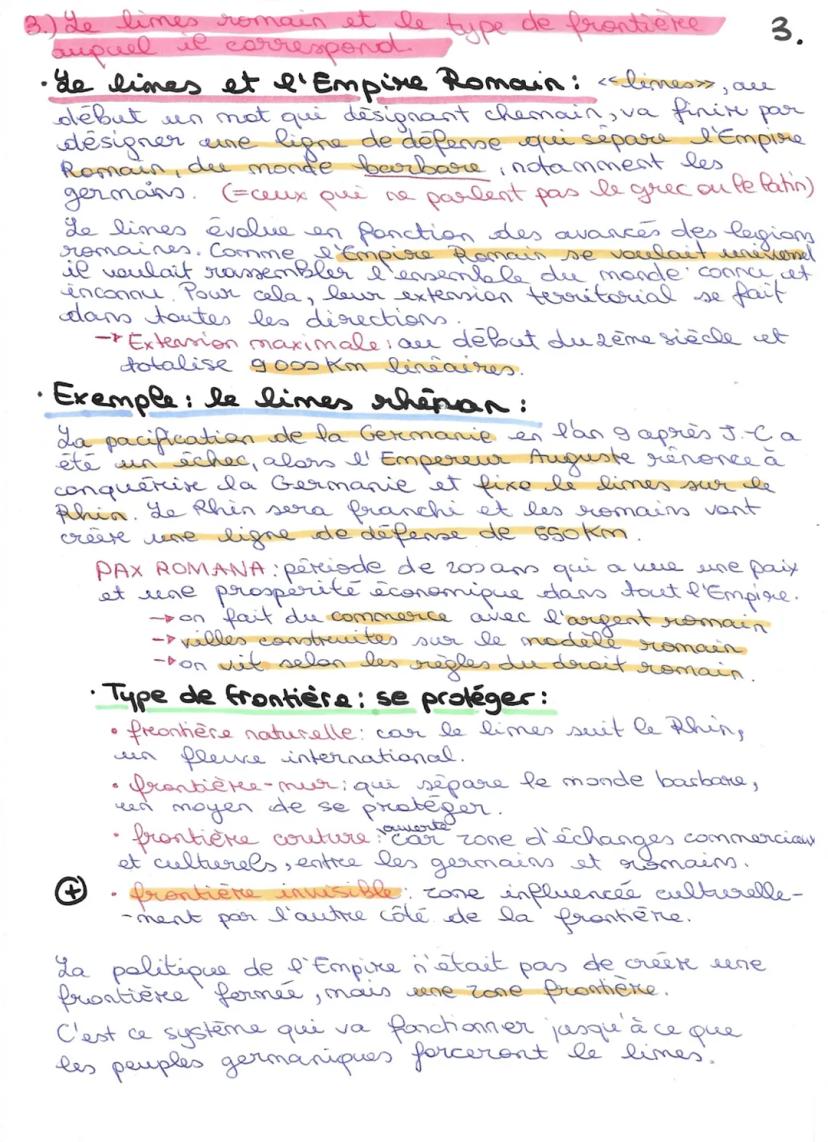 3.) Le limes romain et le type de frontière
auquel il correspond.
3.
• Le limes et l'Empire Romain : «limes», au
début un mot qui désignant chemain, va finir par
désigner une ligne de défense qui sépare l'Empire
Romain, du monde barbare, notamment les
germains. (=ceux qui ne parlent pas le grec ou le latin)
Le limes évolue en fonction des avancés des legions
romaines. Comme l'Empire Romain se voulait universel
il voulait rassembler l'ensemble du monde: connu et
inconnu. Pour cela, leur extension territorial se fait
dans toutes les directions.
→ Extension maximale: au début du 2ème siècle et
totalise 9000 Km linéaires.
• Exemple : le limes rhénan :
La pacification de la Germanie en l'an 9 après J.-C a
été un échec, alors l'Empereur Auguste rénonce à
conquérire la Germanie et fixe le limes sur le
Rhin. Le Rhin sera franchi et les romains vont
créer une ligne de défense de 550 Km.
PAX ROMANA : période de 200 ans qui a vue une paix
et une prospérité économique dans tout l'Empire.
→ on fait du commerce avec l'argent romain
→ villes construites sur le modèle romain
→ on vit selon les règles du droit romain.
• Type de frontière : se protéger :
• frontière naturelle : car le limes suit le Rhin,
un fleuve international.
• frontière-mur : qui sépare le monde barbare,
un moyen de se protéger.
• frontière couture ouverte : car zone d'échanges commerciaux
et culturels, entre les germains et romains.
+ • frontière invisible : zone influencée culturelle-
-ment par l'autre côté de la frontière.
La politique de l'Empire n'était pas de créer une
frontière fermée, mais une zone frontière.
C'est ce système qui va fonctionner jusqu'à ce que
les peuples germaniques forceront le limes.